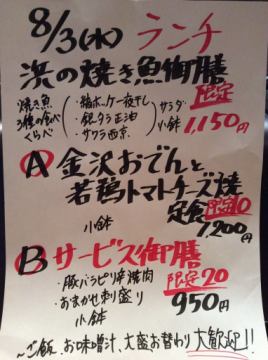 8/3(水) ランチ
浜の焼き魚御膳
焼き魚
3種の食べ
くらべ
・縞ホッケ一夜干し
・銀ダラ正油
・サワラ西京
サラダ
小鉢
限定
1,150円
A 金沢おでんと
若鶏トマトチーズ焼
定食 限定10
小鉢
1,200円
B サービス御膳
・豚バラピリ辛焼肉
・おまかせ刺盛り
小鉢
限定20
950円
〜ご飯、お味噌汁、大盛お替わり大歓迎!!